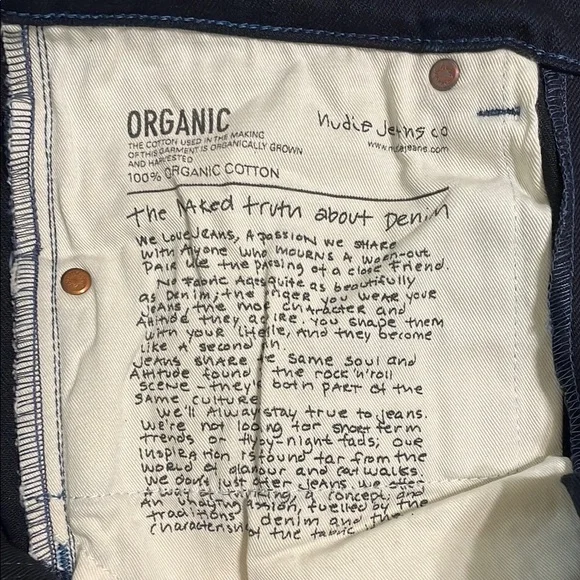 ORGANIC
THE COTTON USED IN THE MAKING
OF THIS GARMENT IS ORGANICALLY GROWN
AND HARVESTED
100% ORGANIC COTTON
nudie jeans co
www.nudiejeans.com
The Naked truth about Denim
We Love Jeans, A passion we share
with Anyone who mourns A worn-out
pair like the passing of a close friend.
No Fabric Ages quite as beautifully
as Denim; the longer you wear your
jeans, the more character and
Attitude they acquire. You shape them
with your lifestyle, and they become
like a second skin.
Jeans share the same soul and
Attitude found in the rock'n'roll
scene - they're both part of the
same culture.
We'll Always stay true to jeans.
We're not looking for short term
trends or fly-by-night fads; our
inspiration is found far from the
world of glamour and catwalks.
We don't just offer jeans, we offer
a way of thinking, a concept, and
An undying passion, fuelled by the
traditions of denim and the
characteristics of the fabric